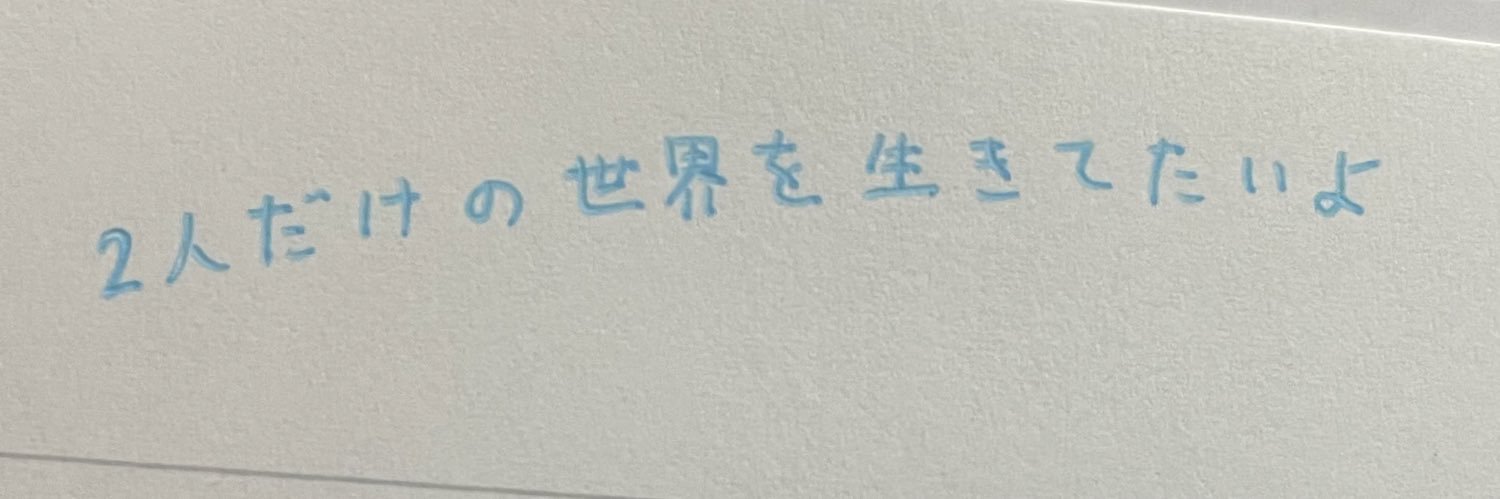 2人だけの世界を生きてたいよ